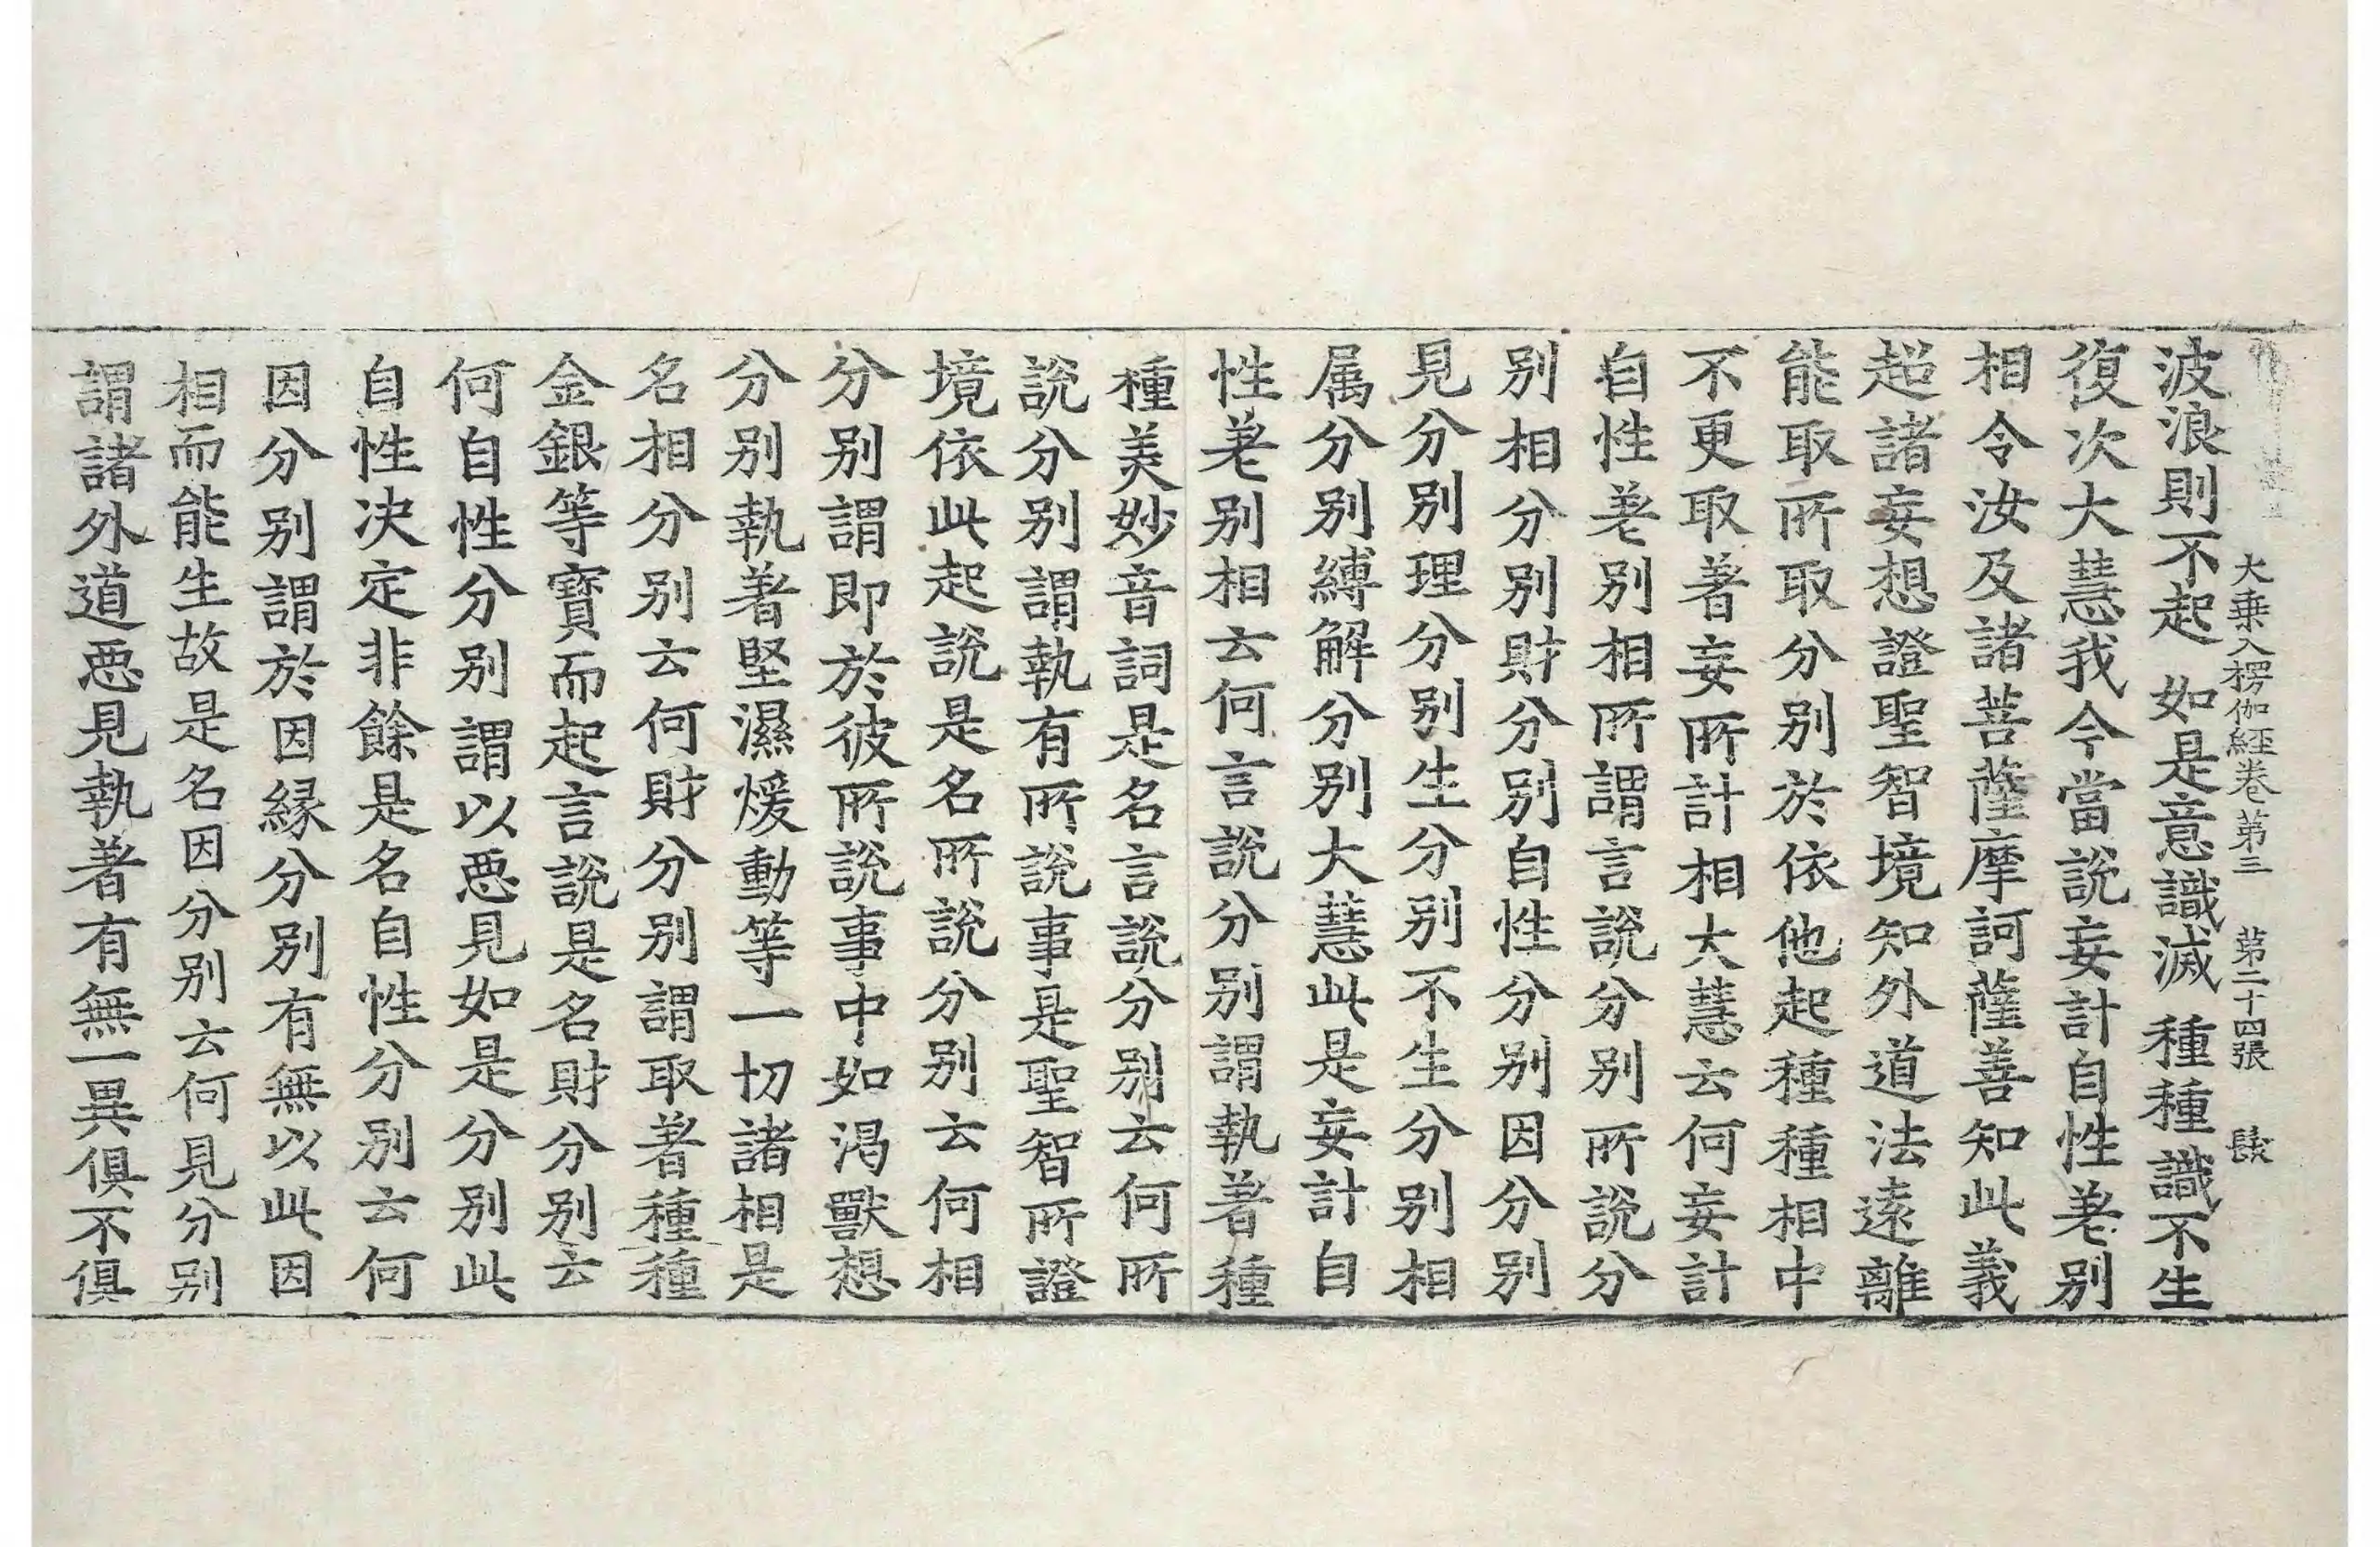 大乗入楞伽経卷第三 第二十四張 髮
波浪則不起 如是意識滅 種種識不生
復次大慧我今當説妄計自性差别
相令汝及諸菩薩摩訶薩善知此義
超諸妄想證聖智境知外道法遠離
能取所取分别於依他起種種相中
不更取著妄所計相大慧云何妄計
自性差别相所謂言説分别所説分
别相分别財分别自性分别因分别
見分别理分别生分别不生分别相
属分别縛解分别大慧此是妄計自
性差别相云何言説分别謂執著種
種美妙音詞是名言説分别云何所
説分别謂執有所説事是聖智所證
境依此起説是名所説分别云何相
分别謂即於彼所説事中如渇獸想
分别執著堅濕煖動等一切諸相是
名相分别云何財分别謂取著種種
金銀等寶而起言説是名財分别云
何自性分别謂以惡見如是分别此
自性决定非餘是名自性分别云何
因分别謂於因縁分别有無以此因
相而能生故是名因分别云何見分别
謂諸外道惡見執著有無一異俱不俱